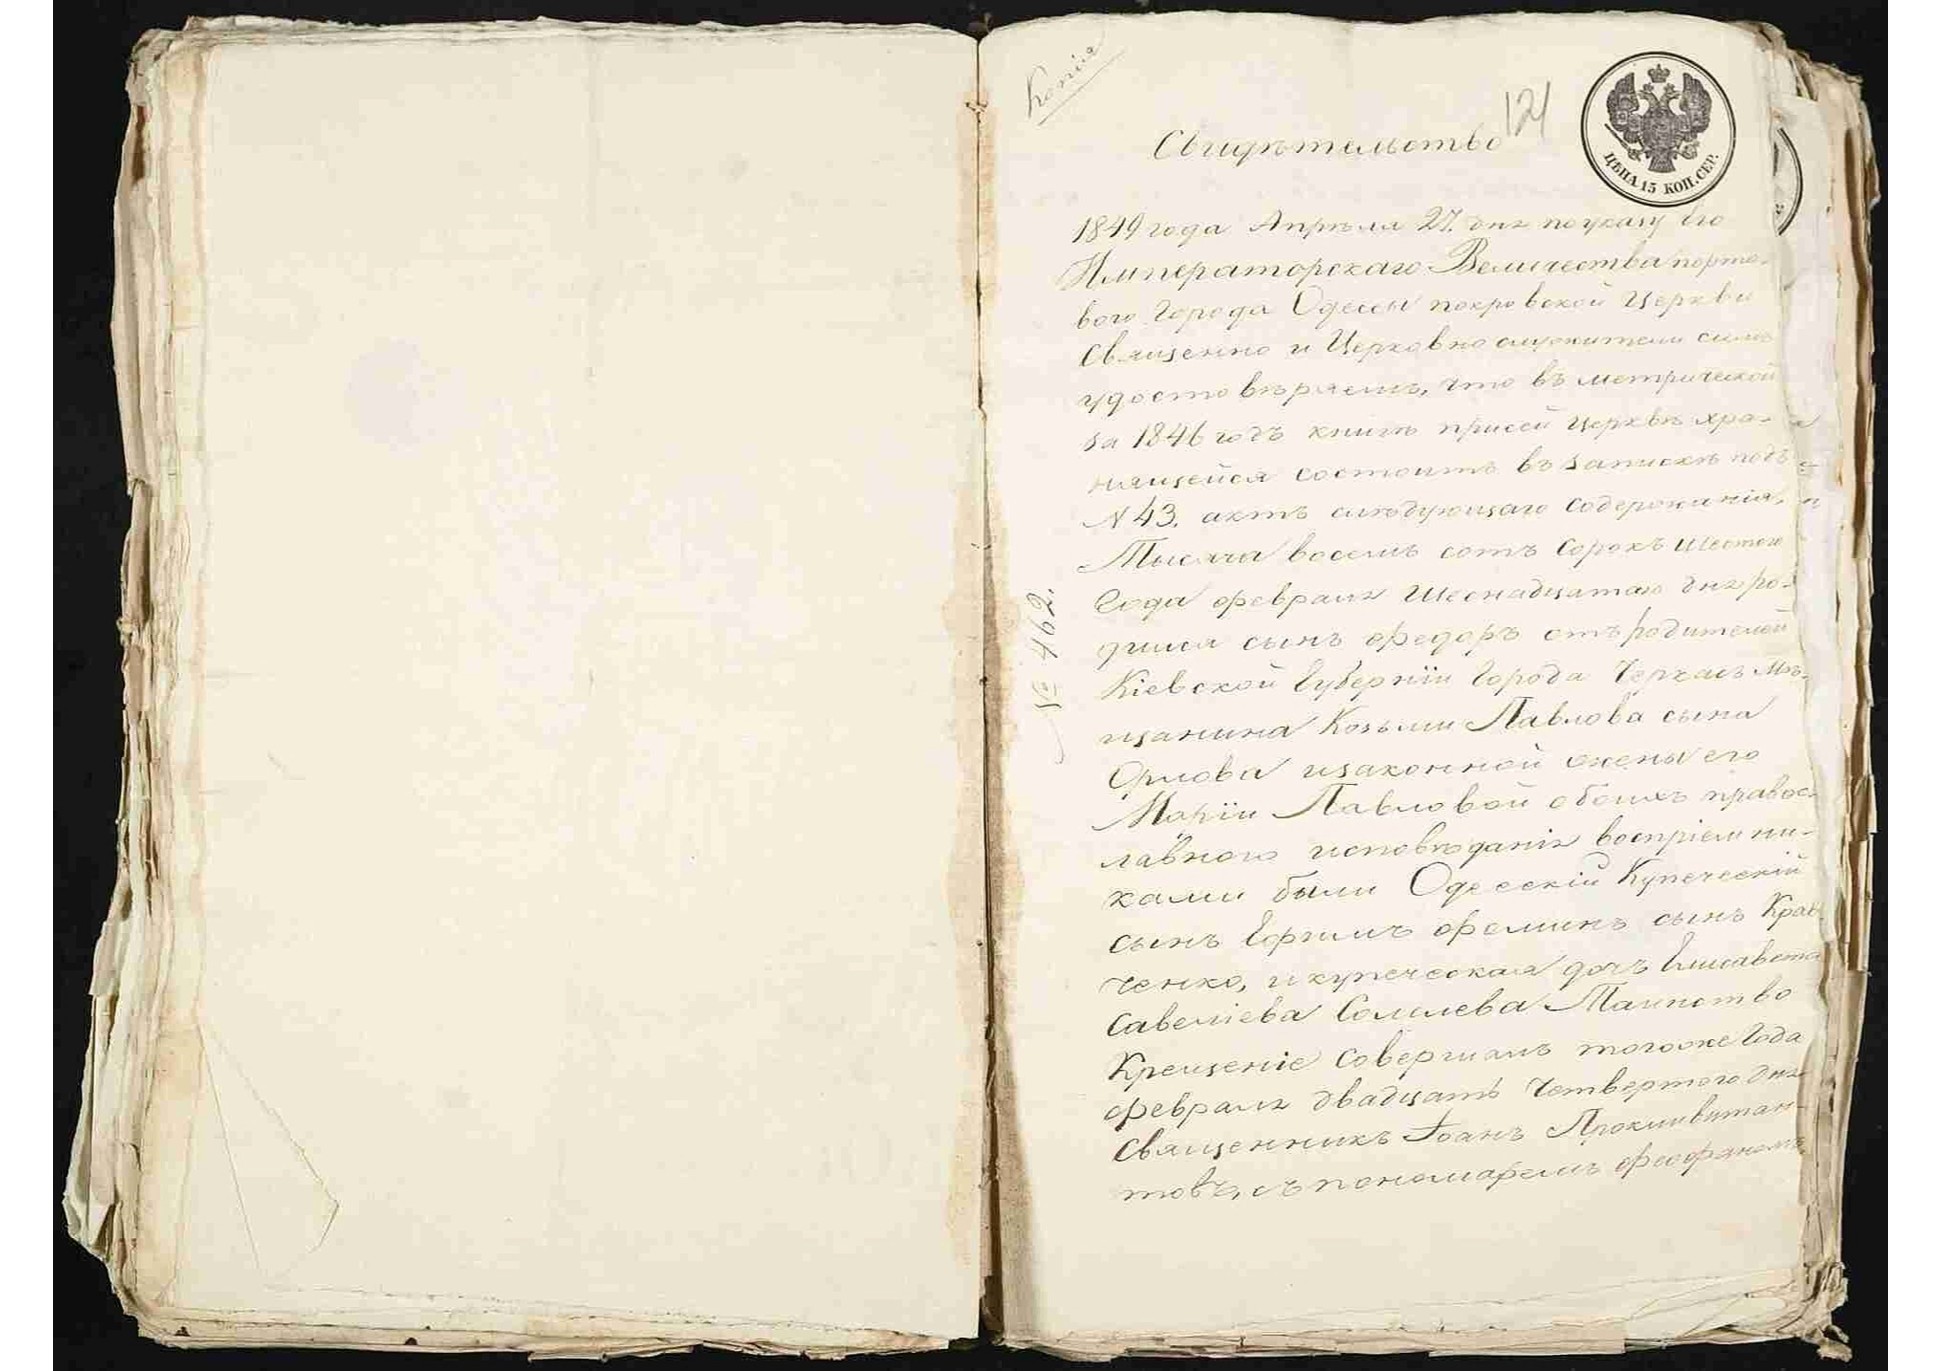 Копія
121
Свидѣтельство
ЦѢНА 15 КОП. СЕР.
1849 года Апрѣля 27. дня по указу Его
Императорскаго Величества порто-
вого Города Одессы покровской Церкви
Священно и Церковно служители симъ
удостовѣряемъ, что въ метрической
за 1846 годъ книгѣ присей Церквѣ хра-
нящейся состоитъ въ запискѣ подъ
N 43. актъ слѣдующаго содержанія.
Тысяча восемъ сотъ сорокъ шестого
Года февраля шеснадцатаго дня ро-
дился сынъ Федоръ отъ родителей
Кіевской Губерніи Города Черкасъ Мѣ-
щанина Козьми Павлова сына
Орлова изаконной жены его
Маріи Павловой обоихъ правос-
лавного исповѣданія воспріемни-
ками были Одесскій Купеческій
сынъ Ефимъ фоминъ сынъ Крав-
ченко, и купеческая дочъ Елисавета
Савеліева Таинство
Крещеніе совершалъ тогоже Года
февраля двадцатъ четвертого дня
Священникъ Іоанъ
товъ, съ пономаремъ Феофаномъ
№ 462.